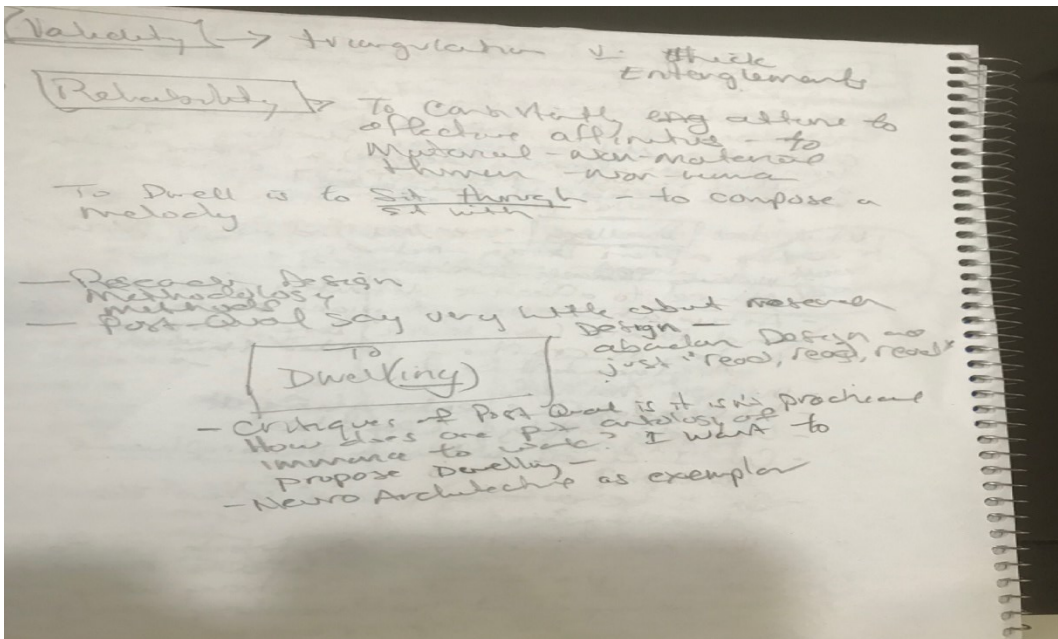 Validity → triangulation v. thick
Entanglements
Reliability → To consistently eng attune to
affective affinities - to
Material - non-material
Human - non-huma
To Dwell is to Sit through - to compose a
melody sit with
— Research Design
Methodology
Methods
— Post-Qual say very little about research
Design —
abandon Design
just "read, read, read"
To
Dwell(ing)
- Critiques of Post Qual is it isn't practical
How does one put ontology of
immanence to work? I want to
propose Dwelling -
- Neuro Architecture as exemplar